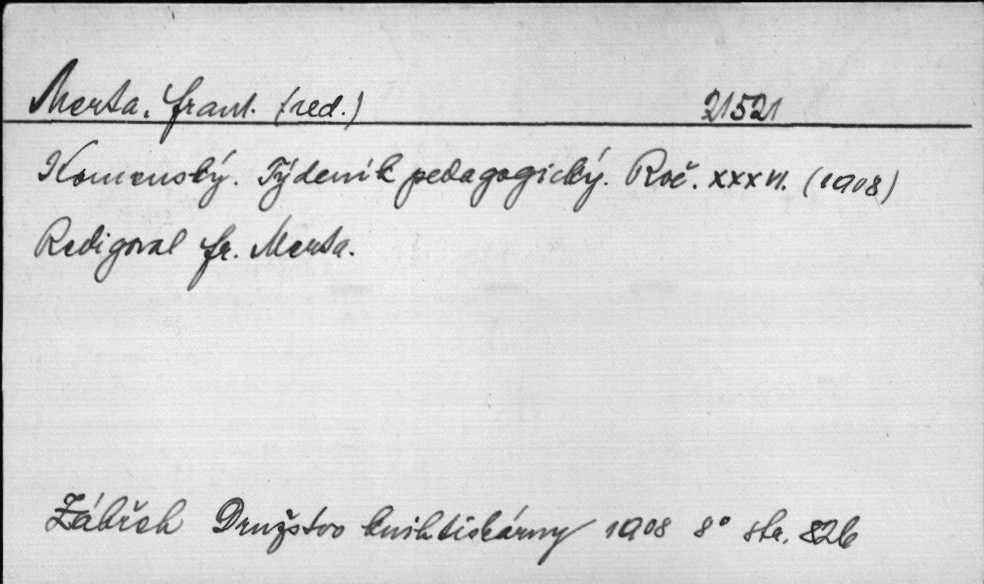 Merta, Frant. (red.) 21521
Komenský. Týdeník pedagogický. Roč. XXXVI. (1908)
Redigoval Fr. Merta.
Zábřeh Družstvo knihtiskárny 1908 8° str. 826